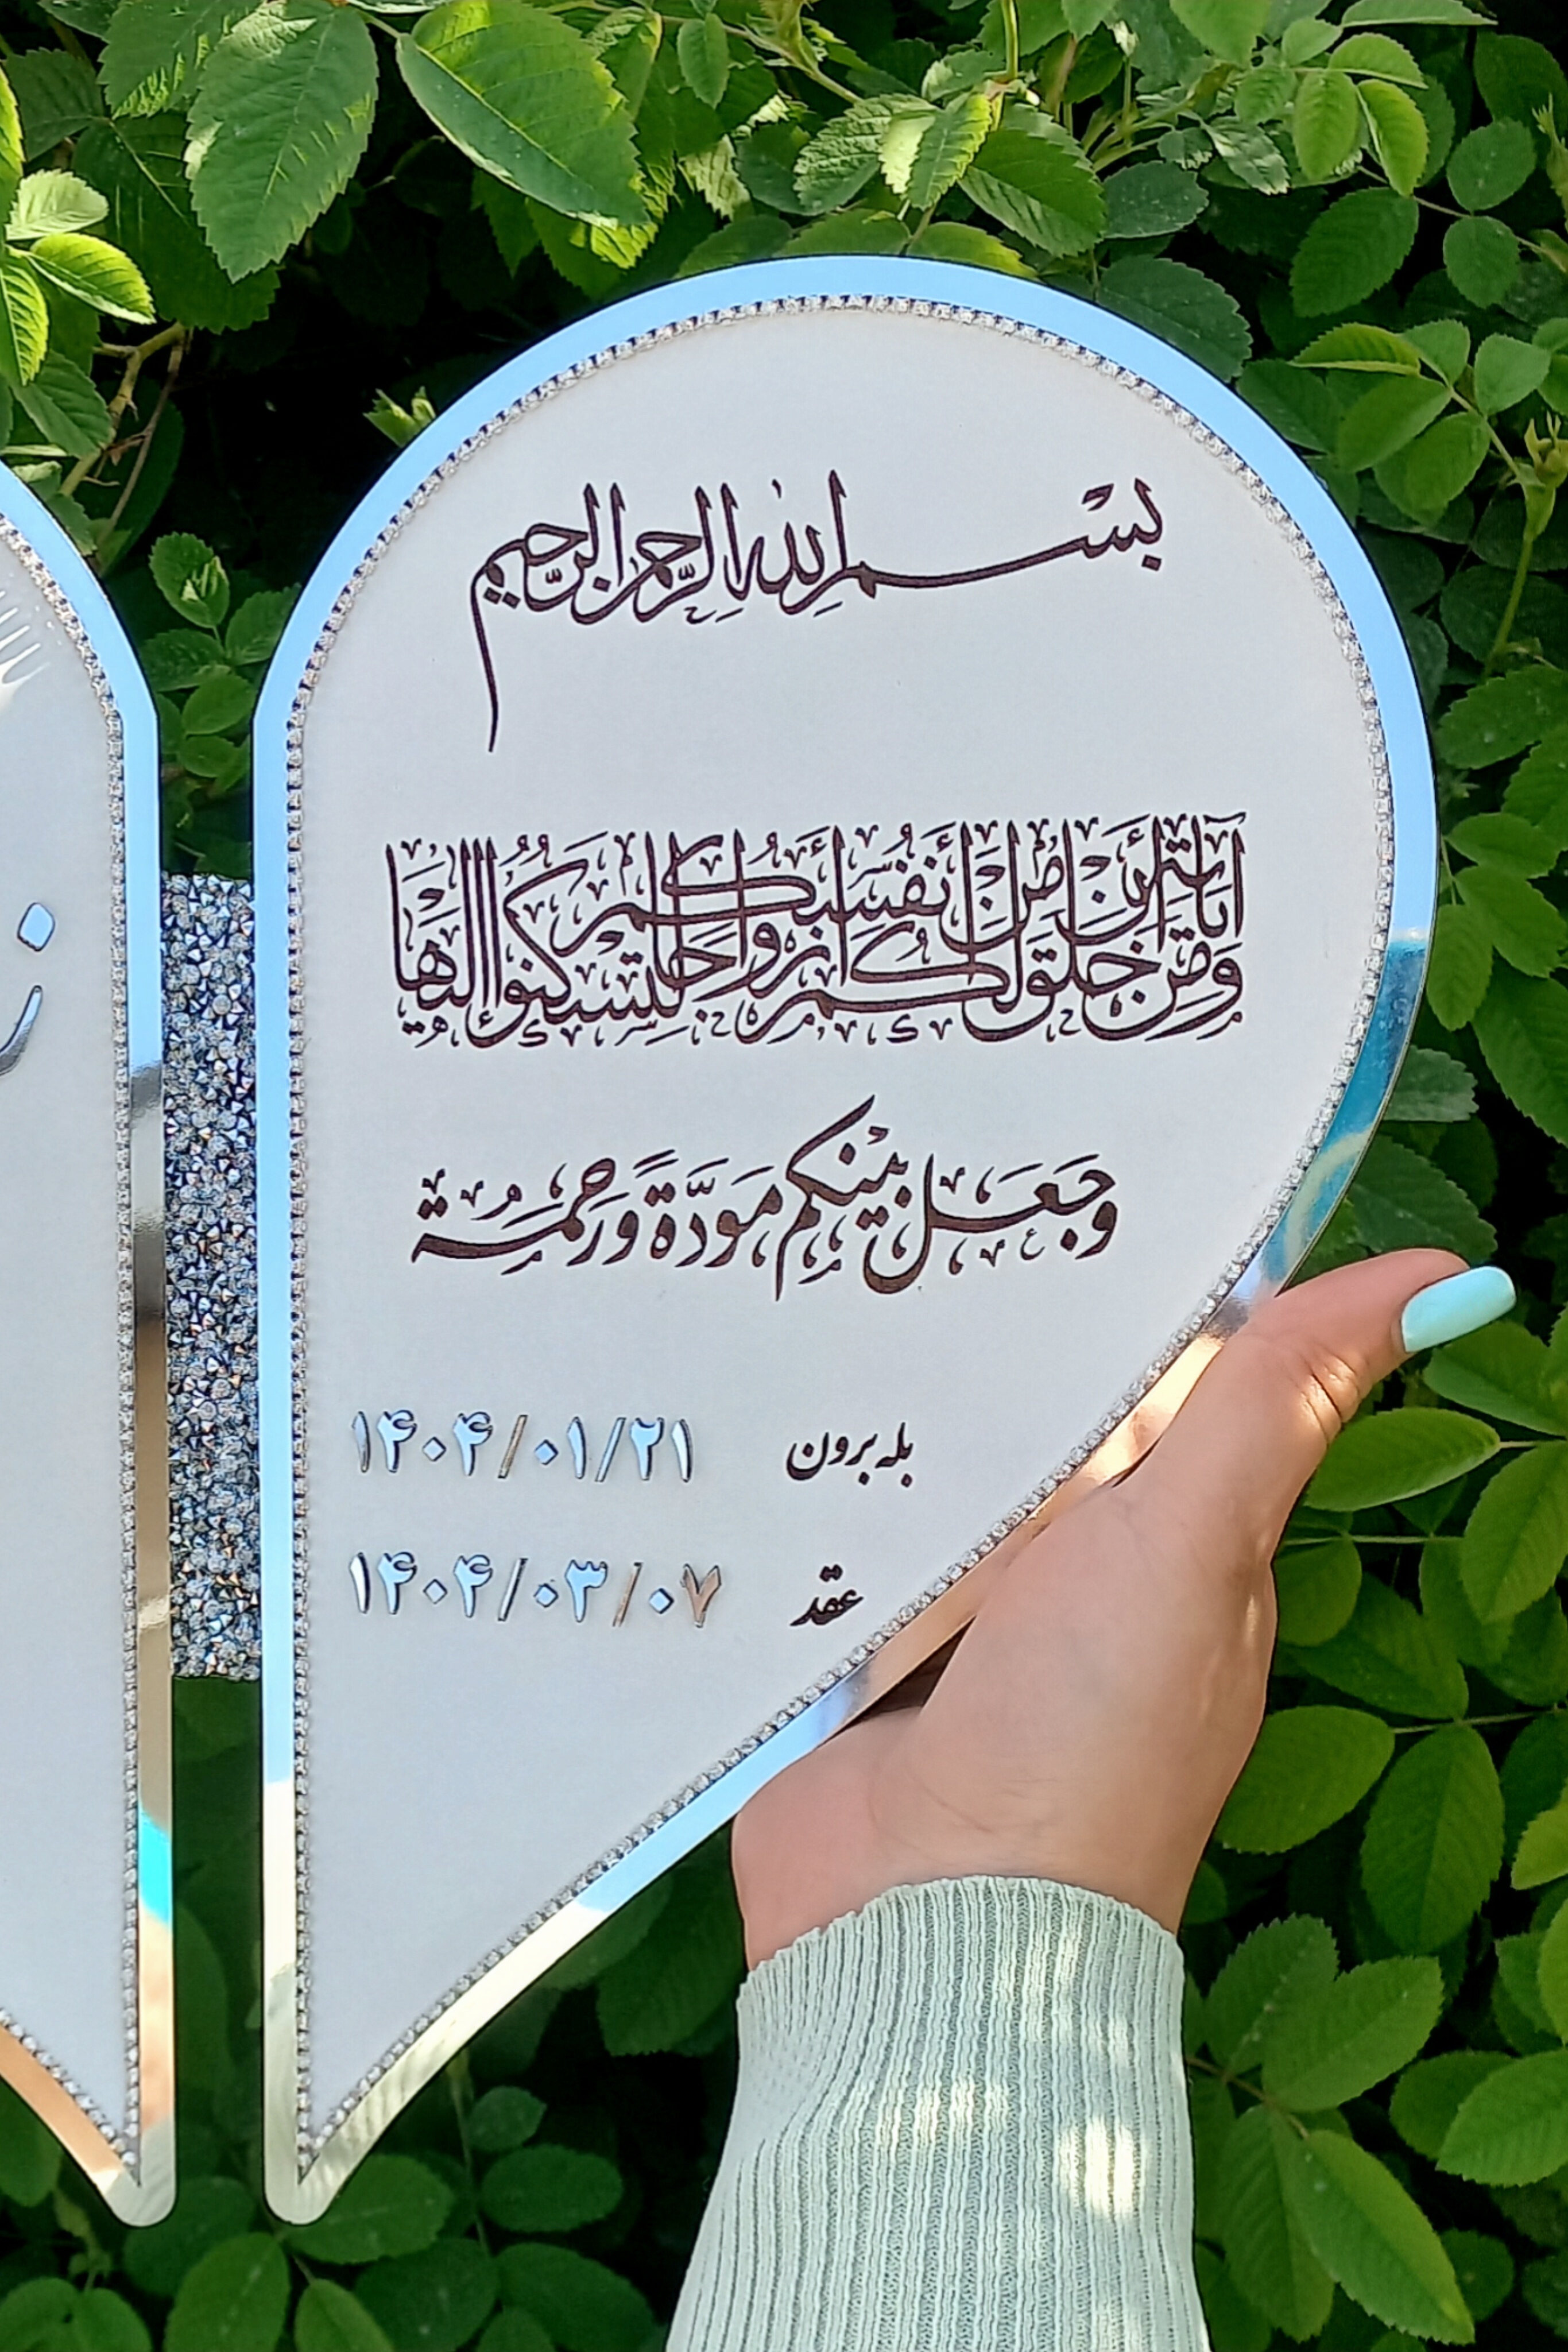 بسم الله الرحمن الرحیم
وَمِنْ آيَاتِهِ أَنْ خَلَقَ لَكُمْ مِنْ أَنْفُسِكُمْ أَزْوَاجًا لِتَسْكُنُوا إِلَيْهَا
وَجَعَلَ بَيْنَكُمْ مَوَدَّةً وَرَحْمَةً
بله برون ۱۴۰۴/۰۱/۲۱
عقد ۱۴۰۴/۰۳/۰۷